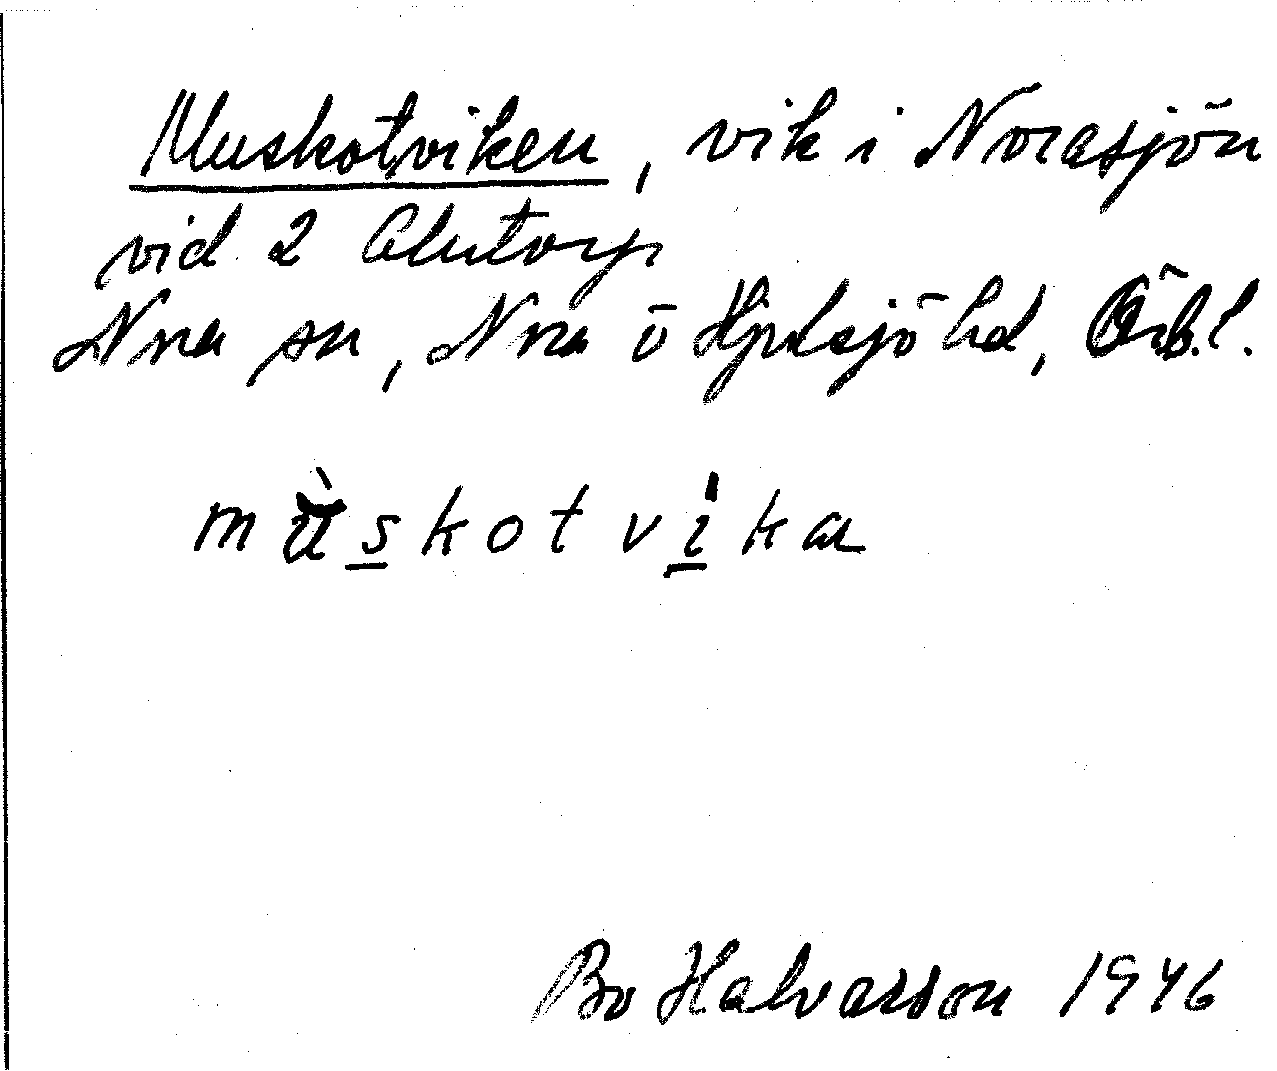 Muskotviken, vik i Norasjön
vid 2 Alntorp
Nra sn, Nra o Hjulsjö hd, Örb.l.
mùskotvika
Bo Halvarsson 1946